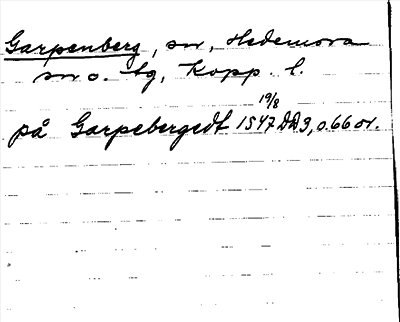 Garpenberg, sn, Hedemora
sn o. tg, Kopp. l.
19/8
på Garpebergedt 1547 DD 3, o. 66 or.